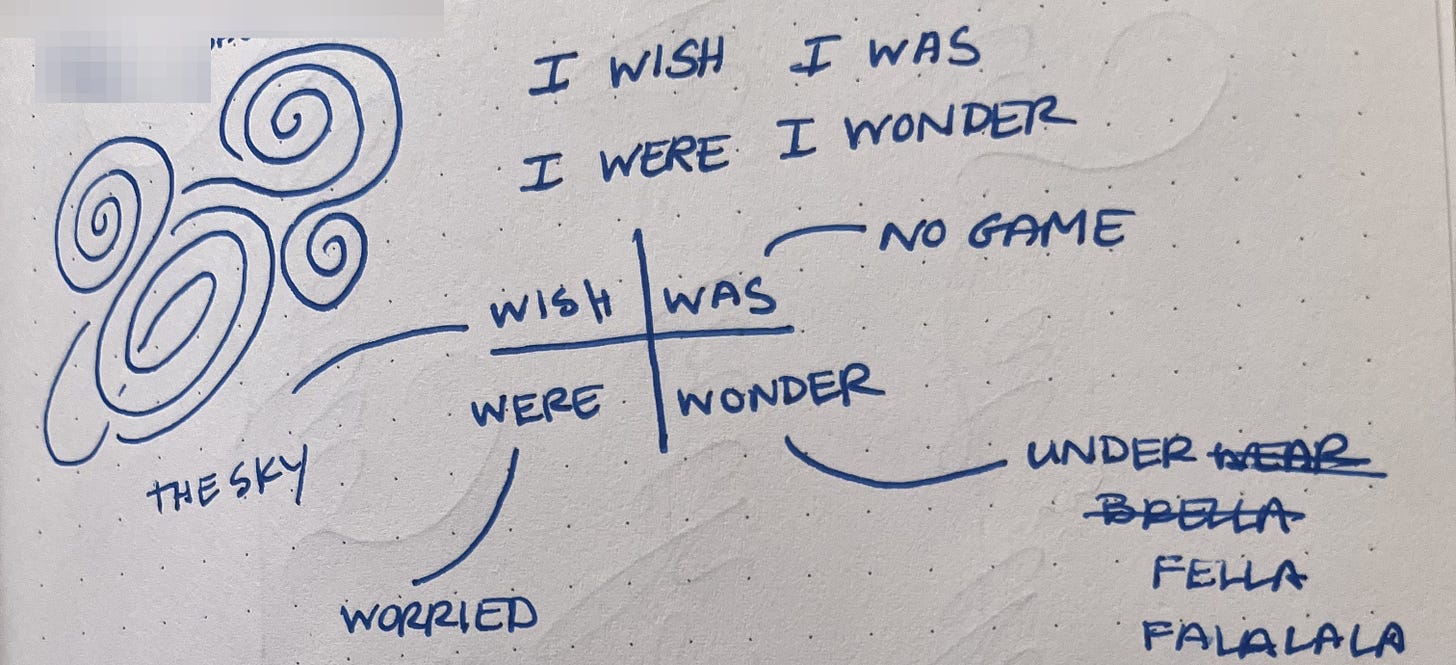 I WISH I WAS
I WERE I WONDER
NO GAME
WISH WAS
WERE WONDER
UNDER WEAR
BRELLA
THE SKY
FELLA
WORRIED
FALALALA